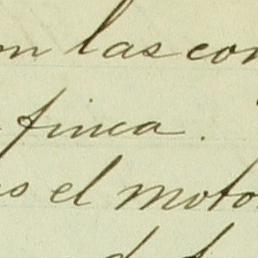 on las con
finca.
os el moto